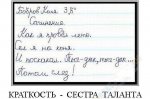 Бобров Коля 3,,Б"
Сочинение.
Как я провел лето.
Сел я на коня.
И поскакал. Тыг-дык, тыг-дык...
Потом слез!
КРАТКОСТЬ - СЕСТРА ТАЛАНТА